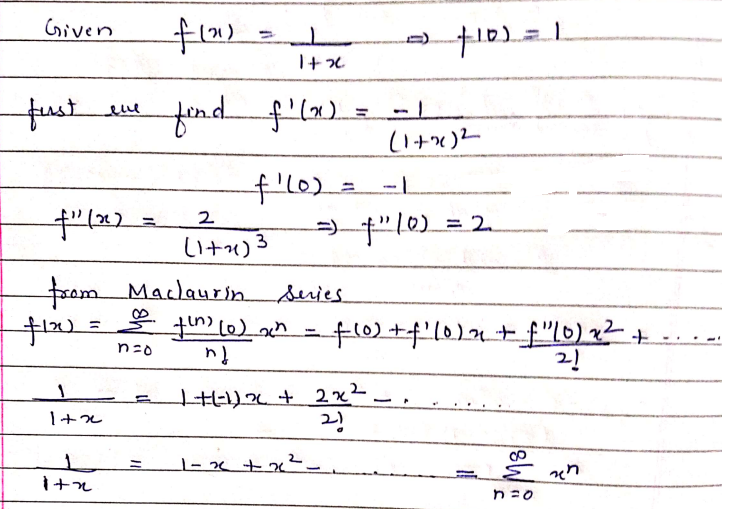 Given f(x) = 1/(1+x) => f(0) = 1
first we find f'(x) = -1/(1+x)^2
f'(0) = -1
f''(x) = 2/(1+x)^3 => f''(0) = 2
from Maclaurin series
f(x) = ∑_{n=0}^{∞} f^(n)(0)/n! x^n = f(0) + f'(0)x + f''(0)x^2/2! + .....
1/(1+x) = 1+(-1)x + 2x^2/2! - .......
1/(1+x) = 1-x + x^2 - ........ = ∑_{n=0}^{∞} x^n